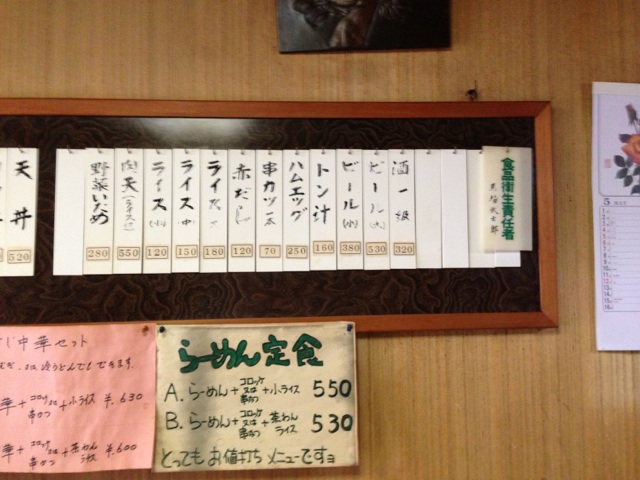 天丼
520
野菜いため
280
肉天(ライス付)
550
ライス(小)
120
ライス(中)
150
ライス(大)
180
赤だし
120
串カツ一本
70
ハムエッグ
250
トン汁
160
ビール(小)
380
ビール(大)
530
酒一級
320
食品衛生責任者
5
中華セット
又は 焼うどんでもできます.
華+コロッケ又は串かつ+小ライス ¥.630
華+コロッケ又は串かつ+茶わんライス ¥.600
らーめん定食
A. らーめん+コロッケ又は串かつ+小ライス 550
B. らーめん+コロッケ又は串かつ+茶わんライス 530
とってもお値打ちメニューですョ